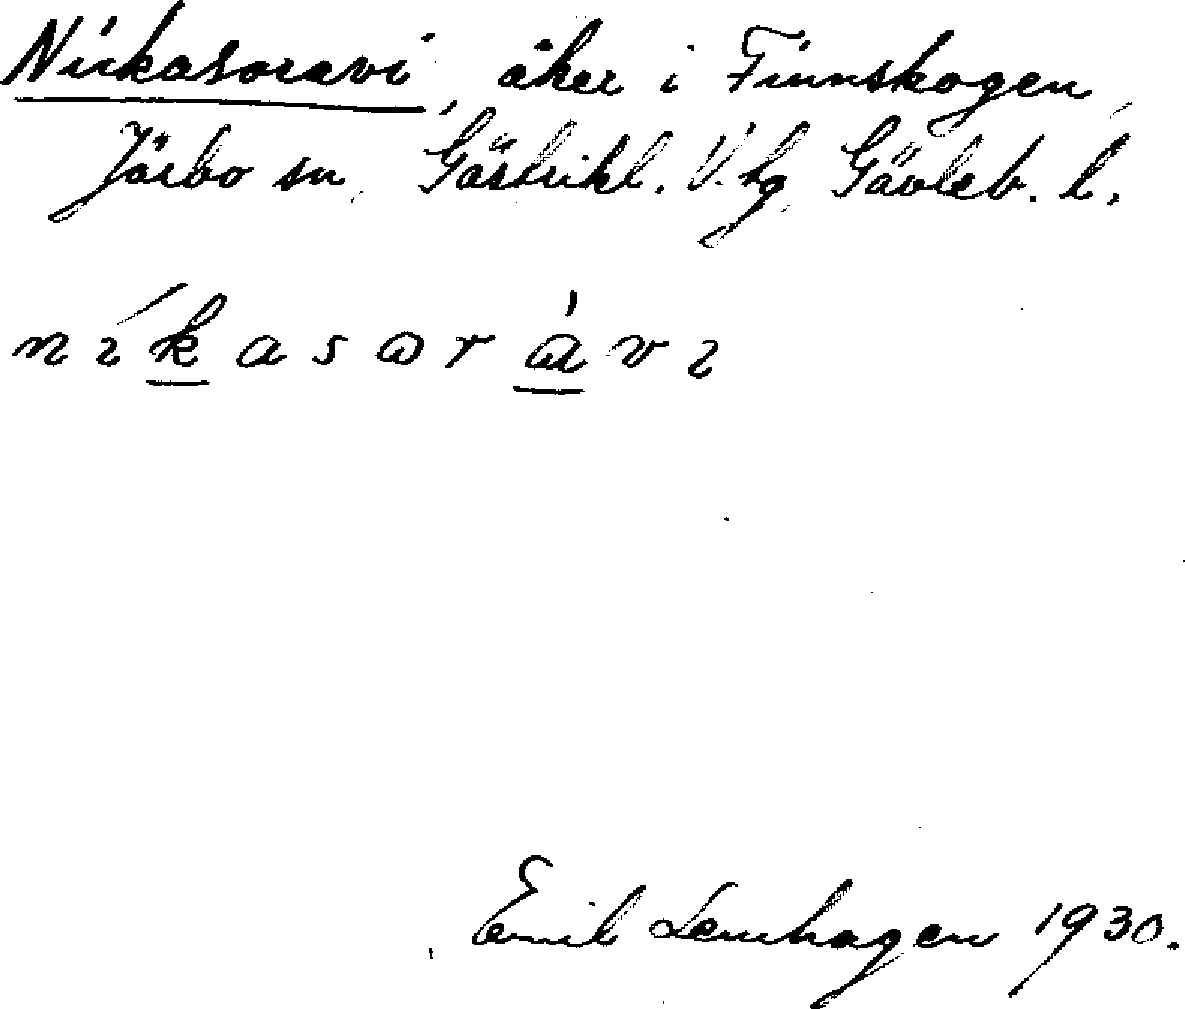 Nickasoravi, åker i Finnskogen,
Järbo sn, Gästrikl. V. tg, Gävleb. l.
n ı ḱ a s ω r á v ı
Emil Lenhagen 1930.